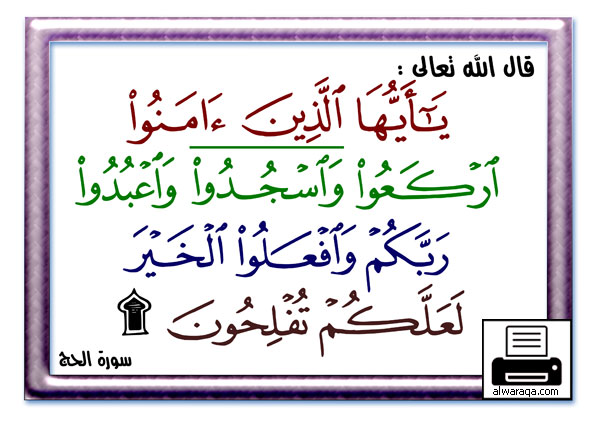 قال الله تعالى :
يَـٰٓأَيُّهَا ٱلَّذِينَ ءَامَنُوا۟
ٱرْكَعُوا۟ وَٱسْجُدُوا۟ وَٱعْبُدُوا۟
رَبَّكُمْ وَٱفْعَلُوا۟ ٱلْخَيْرَ
لَعَلَّكُمْ تُفْلِحُونَ ۩
سورة الحج
alwaraqa.com